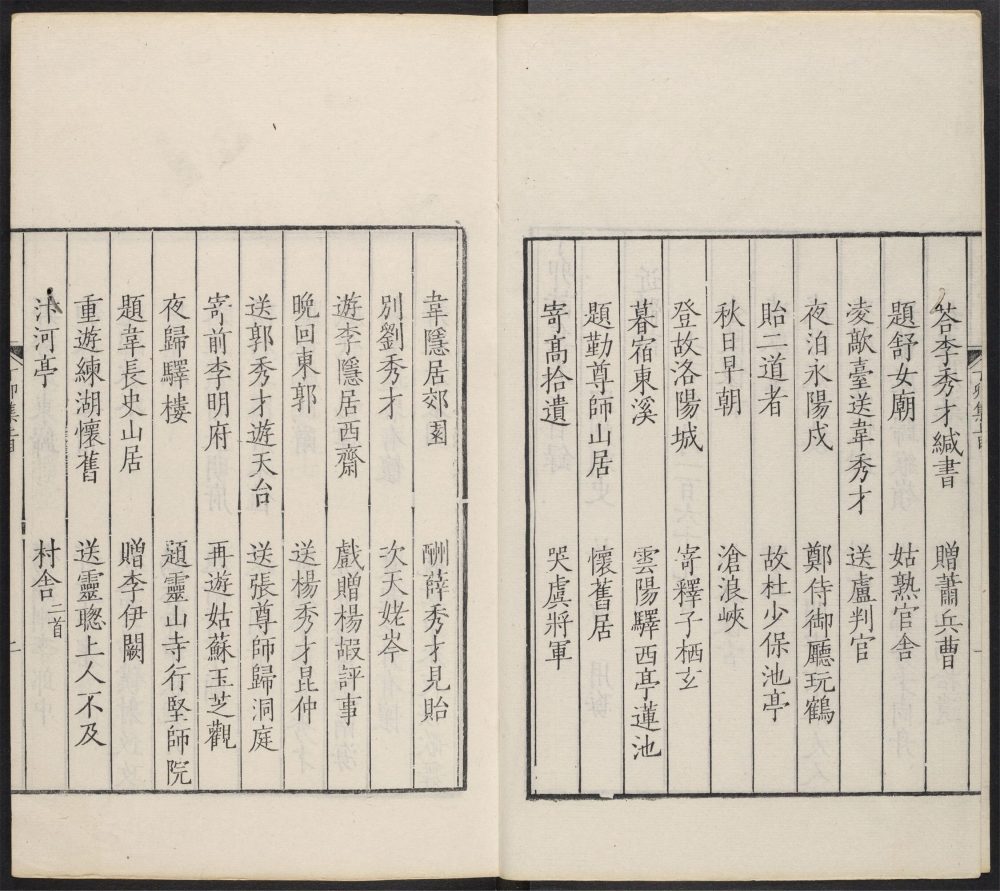 答李秀才緘書　贈蕭兵曹
題舒女廟　姑熟官舍
凌歊臺送韋秀才　送盧判官
夜泊永陽戍　鄭侍御廳玩鶴
貽二道者　故杜少保池亭
秋日早朝　滄浪峽
登故洛陽城　寄釋子栖玄
暮宿東溪　雲陽驛西亭蓮池
題勤尊師山居　懷舊居
寄髙拾遺　哭虞將軍
韋隱居郊園　酬薛秀才見貽
別劉秀才　次天姥岑
遊李隱居西齋　戲贈楊嘏評事
晚回東郭　送楊秀才昆仲
送郭秀才遊天台　送張尊師歸洞庭
寄前李明府　再遊姑蘇玉芝觀
夜歸驛樓　題靈山寺行堅師院
題韋長史山居　贈李伊闕
重遊練湖懷舊　送靈聦上人不及
汴河亭　村舍二首